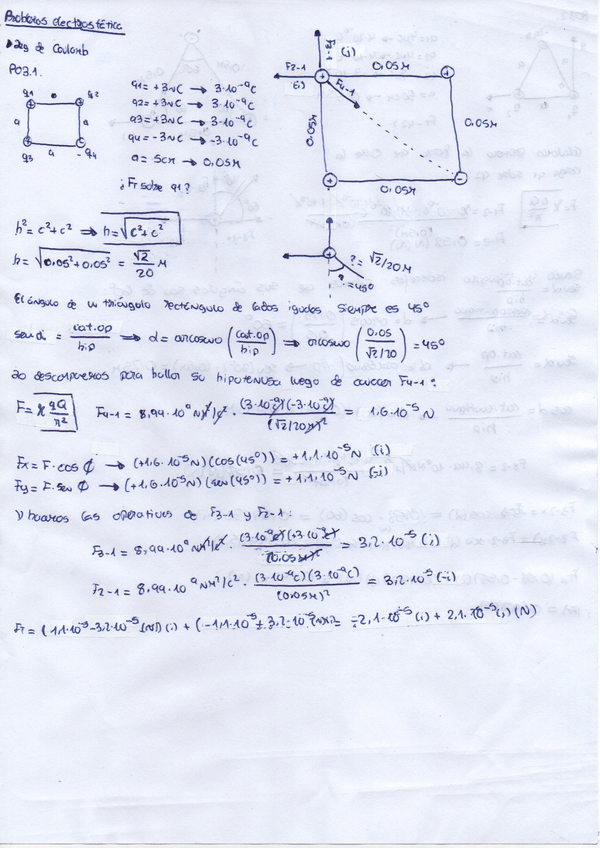 Problemas electrostática
Ley de Coulomb
P03.1.
q1 q2
q1= +3NC → 3·10⁻⁹C
q2= +3NC → 3·10⁻⁹C
q3= +3NC → 3·10⁻⁹C
q4= -3NC → -3·10⁻⁹C
a= 5cm → 0,05M
¿Fr sobre q1?
a a a a
q3 -q4
F3-1 (j)
F2-1
F4-1
0,05M
0,05M
0,05M
0,05M
h²= c²+c² ⇒ h=√c²+c²
h= √0,05²+0,05² = √2/20 M
?= √2/20M
?=45º
El ángulo de un triángulo rectángulo de lados iguales siempre es 45º
sen α = cat.op/hip ⇒ α = arcoseno (cat.op/hip) ⇒ arcoseno (0,05/√2/20) = 45º
Lo descomponemos para hallar su hipotenusa luego de conocer F4-1:
F= K qQ/r² F4-1= 8,99·10⁹ NM²/C² · (3·10⁻⁹C)(-3·10⁻⁹C)/(√2/20M)² = 1,6·10⁻⁵N
Fx= F·cos ϕ → (+1,6·10⁻⁵N)(cos(45º)) = +1,1·10⁻⁵N (i)
Fy= F·sen ϕ → (+1,6·10⁻⁵N)(sen(45º)) = +1,1·10⁻⁵N (-j)
Y hacemos las operativas de F3-1 y F2-1:
F3-1 = 8,99·10⁹ NM²/C² · (3·10⁻⁹C)(+3·10⁻⁹C)/(0,05M)² = 3,2·10⁻⁵ (j)
F2-1 = 8,99·10⁹ NM²/C² · (3·10⁻⁹C)(3·10⁻⁹C)/(0,05M)² = 3,2·10⁻⁵ (-i)
Fr = (1,1·10⁻⁵-3,2·10⁻⁵(N))(i) + (-1,1·10⁻⁵+3,2·10⁻⁵(N))(j) = -2,1·10⁻⁵ (i) + 2,1·10⁻⁵(j) (N)